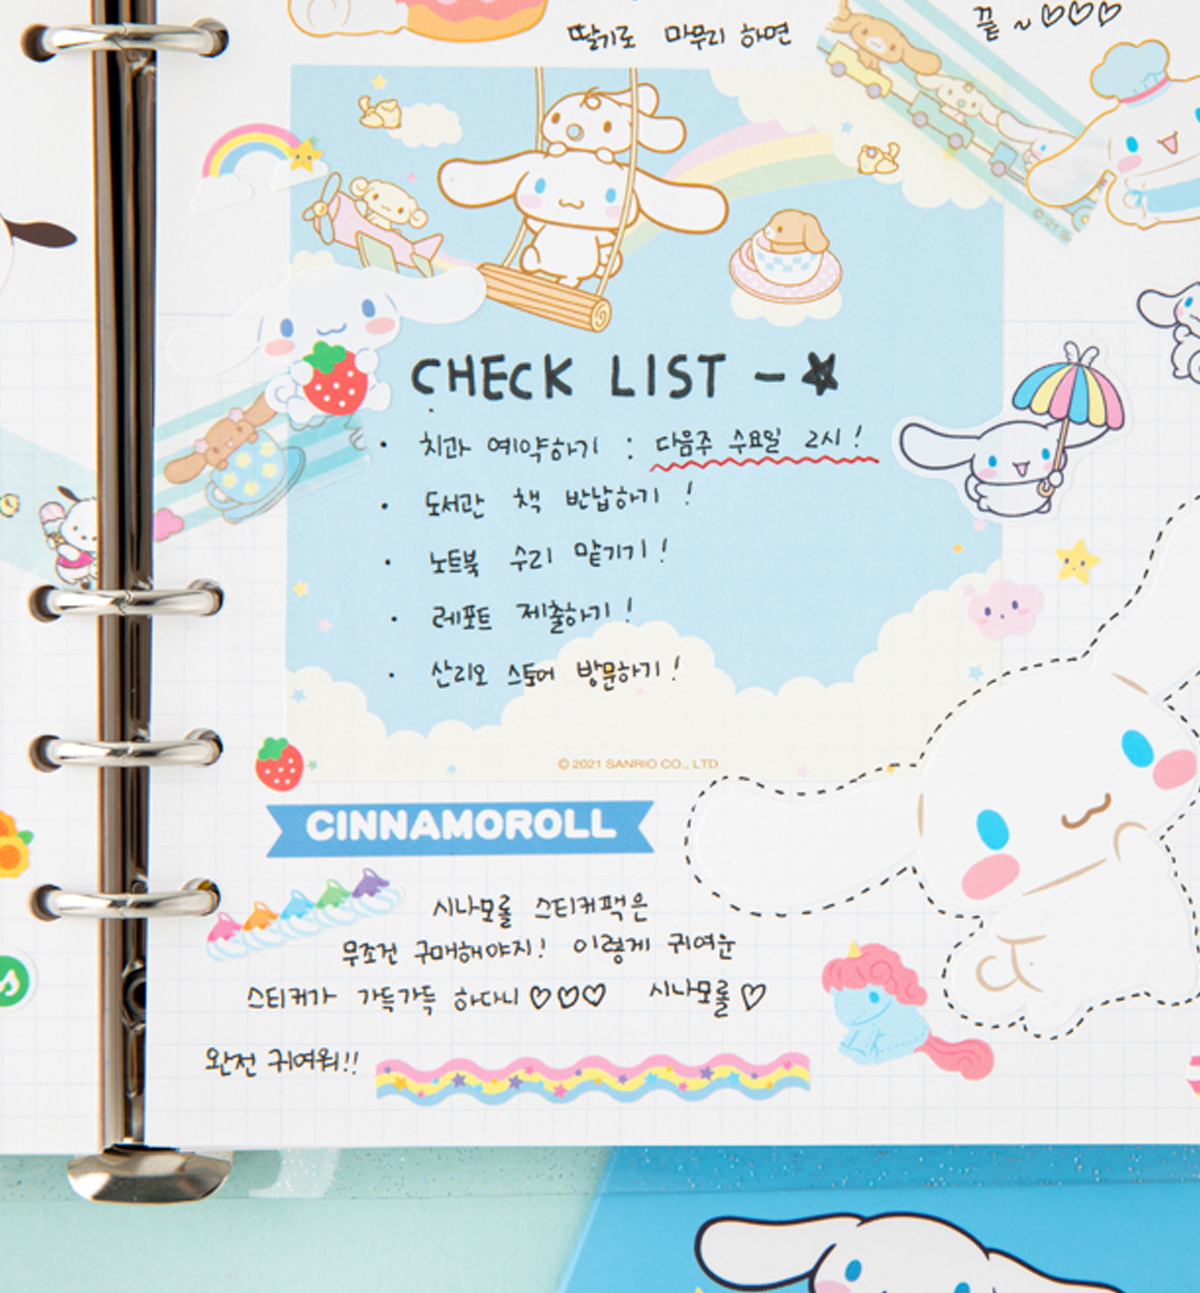 딸기로 마무리 하면
끝 ~ ♡♡♡
CHECK LIST - ★
· 치과 예약하기 : 다음주 수요일 2시!
· 도서관 책 반납하기!
· 노트북 수리 맡기기!
· 레포트 제출하기!
· 산리오 스토어 방문하기!
© 2021 SANRIO CO., LTD.
CINNAMOROLL
시나모롤 스티커팩은
무조건 구매해야지! 이렇게 귀여운
스티커가 가득가득 하다니 ♡♡♡ 시나모롤 ♡
완전 귀여워!!